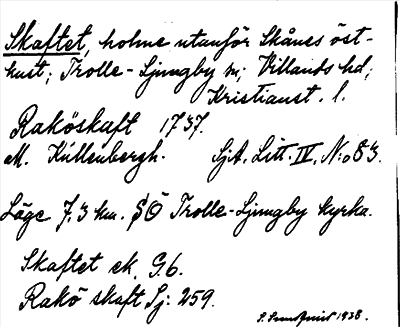 Skaftet, holme utanför Skånes öst-
kust; Trolle-Ljungby sn; Villands hd;
Kristianst. l.
Raköskaft 1737.
M. Kúllenbergh. SjA. Litt. IV. N:o 83.
Läge 7,3 km. SÖ Trolle-Ljungby kyrka.
Skaftet ek. G.6.
Rakö skaft Sj: 259.
1938.